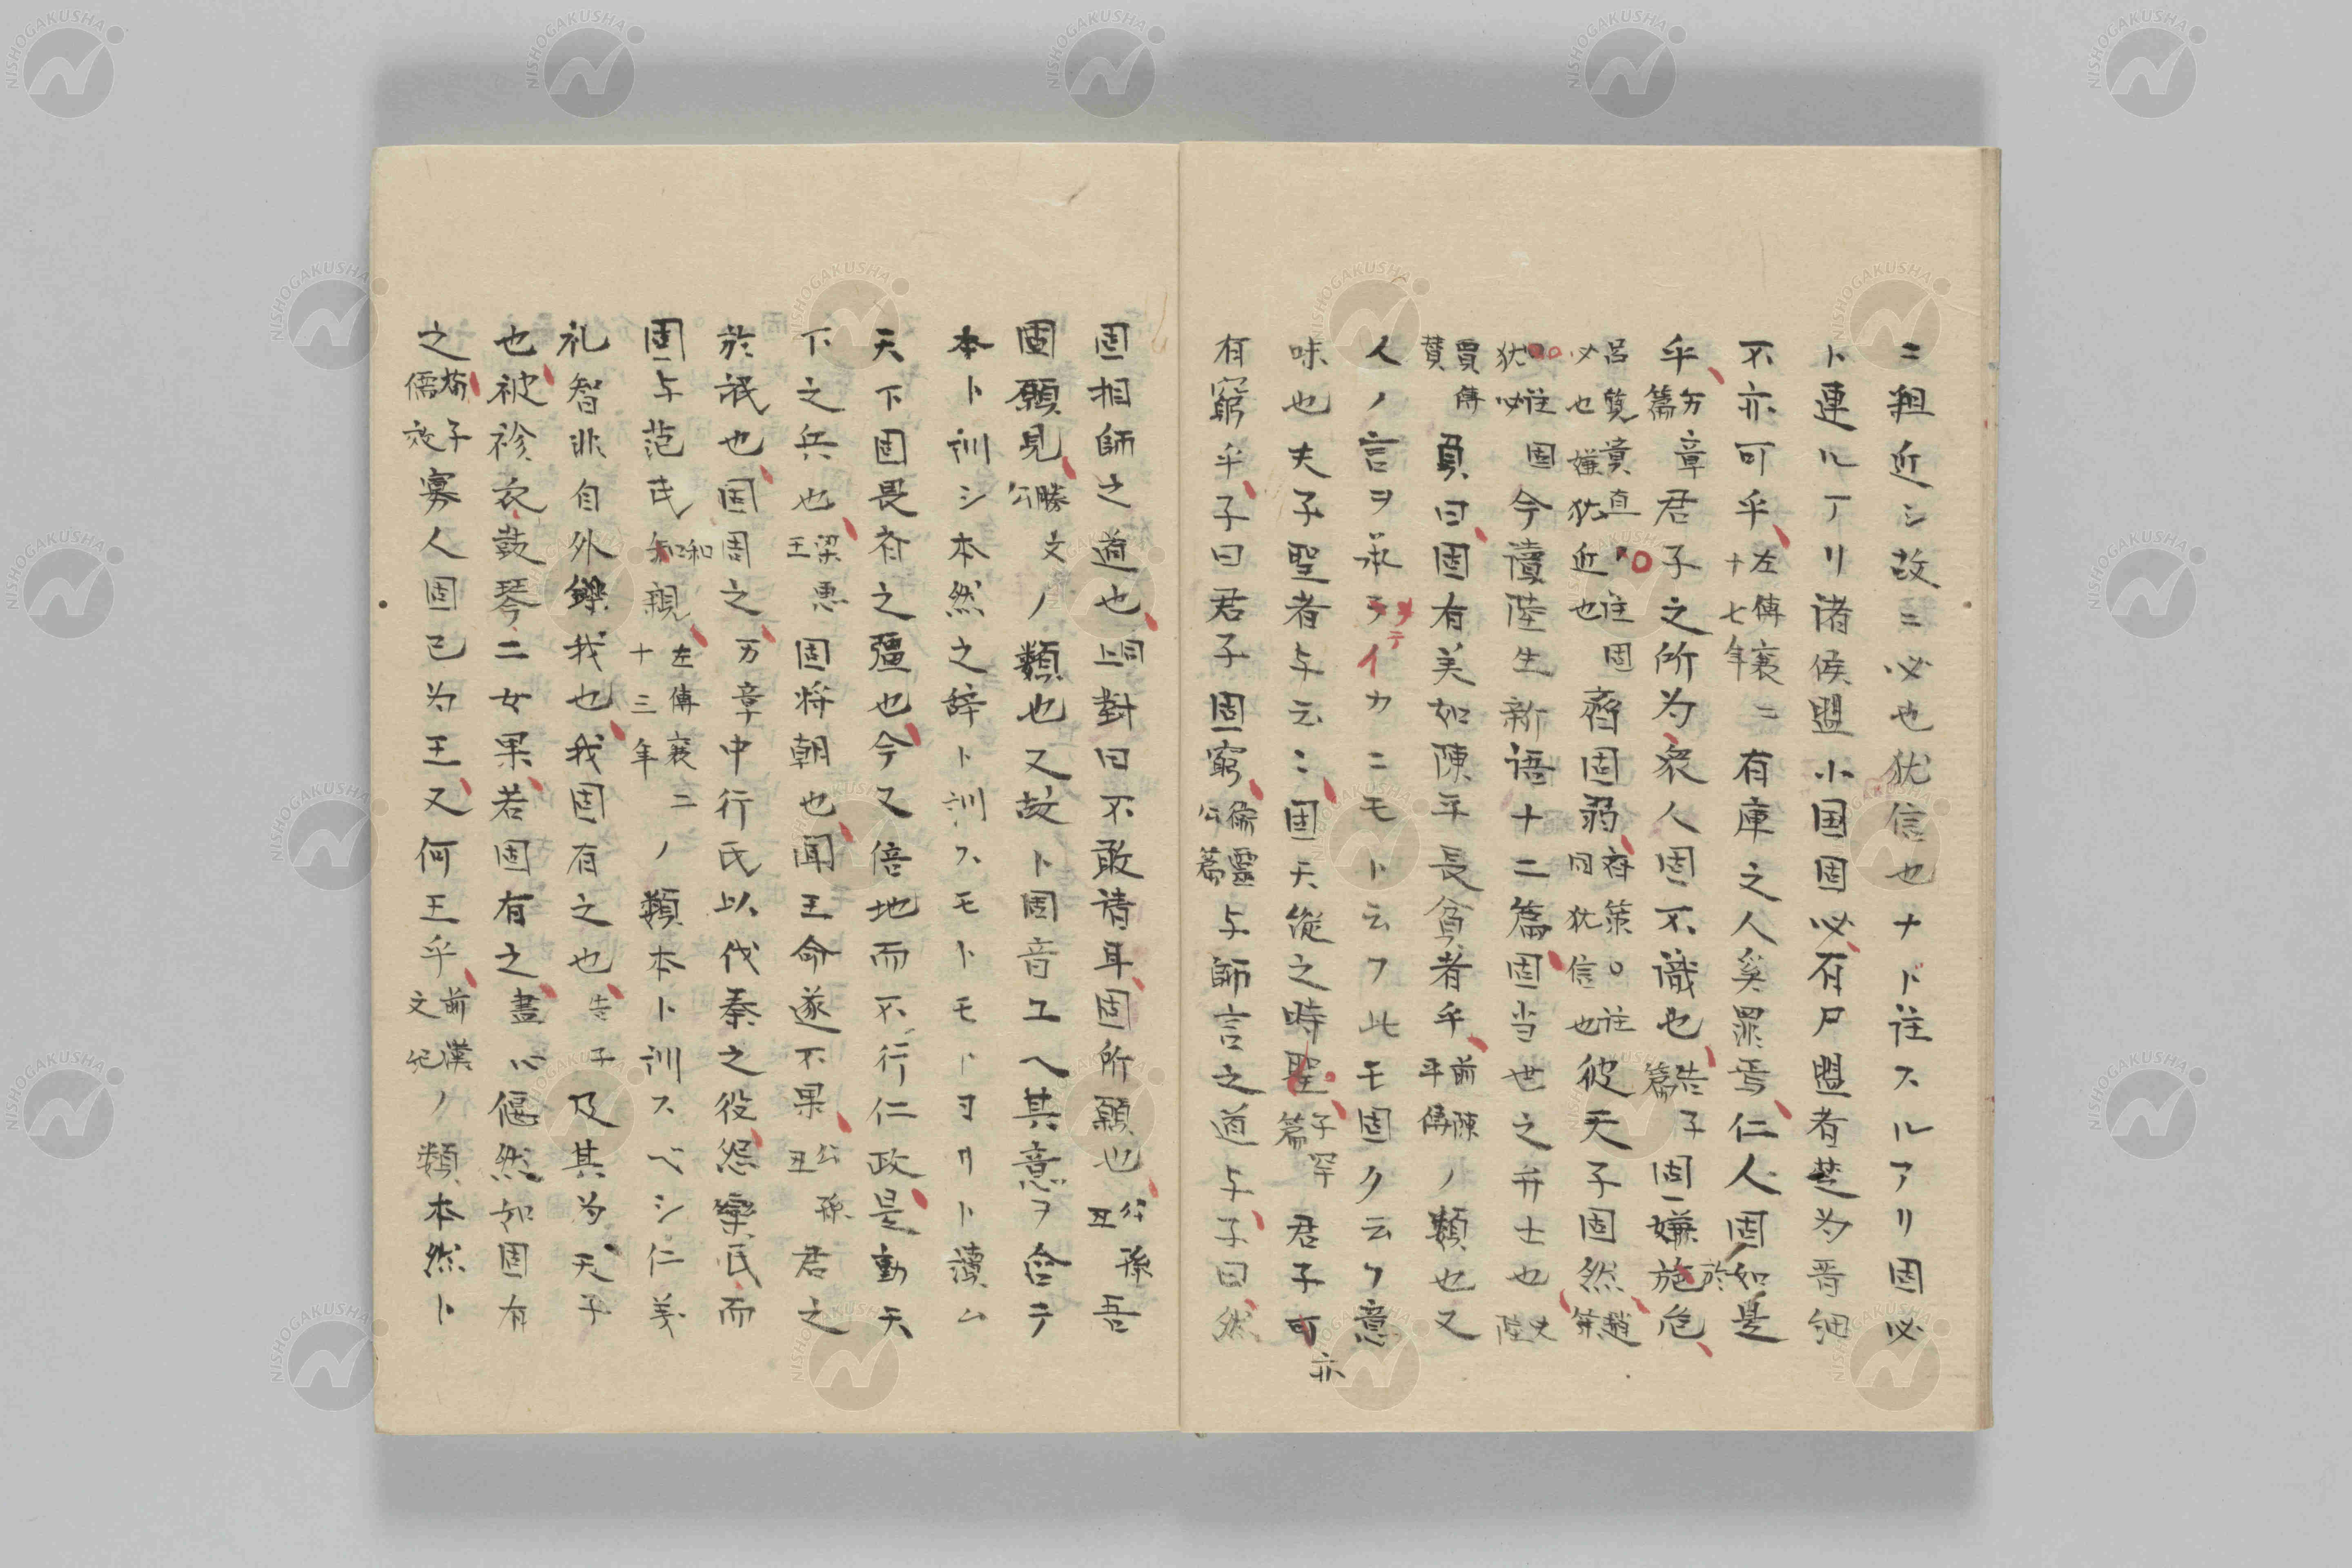 ニ粗近シ故ニ必也犹信也ナド注スルアリ固必
ト連ルヿリ诸侯盟小国固必有尸盟者楚为晋细
不亦可乎左傳襄二十七年有庳之人奚罪焉仁人固如是
乎万章篇君子之所为衆人固不識也告子篇固嫌於危
吕覧貴直注固必也嫌犹近也注固齊固弱齐策注固犹信也彼天子固然趙策
注犹必固今讀陸生新语十二篇固当世之弁士也史陸
賈傳賛負曰固有美如陳平長貧者乎前陳平傳ノ類也又
人ノ言ヲ承メテイカニモト云フ此モ固ク云フ意
味也夫子聖者与云ニ固天從之時聖子罕篇君子可亦
有窮乎子曰君子固窮衛靈公篇与師言之道与子曰然
固相師之道也同上對曰不敢请耳固所願也公孫丑吾
固願見勝文公ノ類也又故ト固音エヘ其意ヲ合テ
本ト训シ本然之辞ト训スモトトモトヨリト讀ム
天下固畏齐之彊也今又倍地而不行仁政是動天
下之兵也梁惠王固将朝也闻王命遂不果公孫丑君之
於氓也固周之万章中行氏以伐秦之役怨欒氏而
固与范氏和親左傳襄二十三年ノ類本ト训スベシ仁義
礼智非自外鑠我也我固有之也告子及其为天子
也被袗衣鼓琴二女果若固有之盡心偃然如固有
之荀子儒效寡人固已为王又何王乎前漢文紀ノ類本然ト